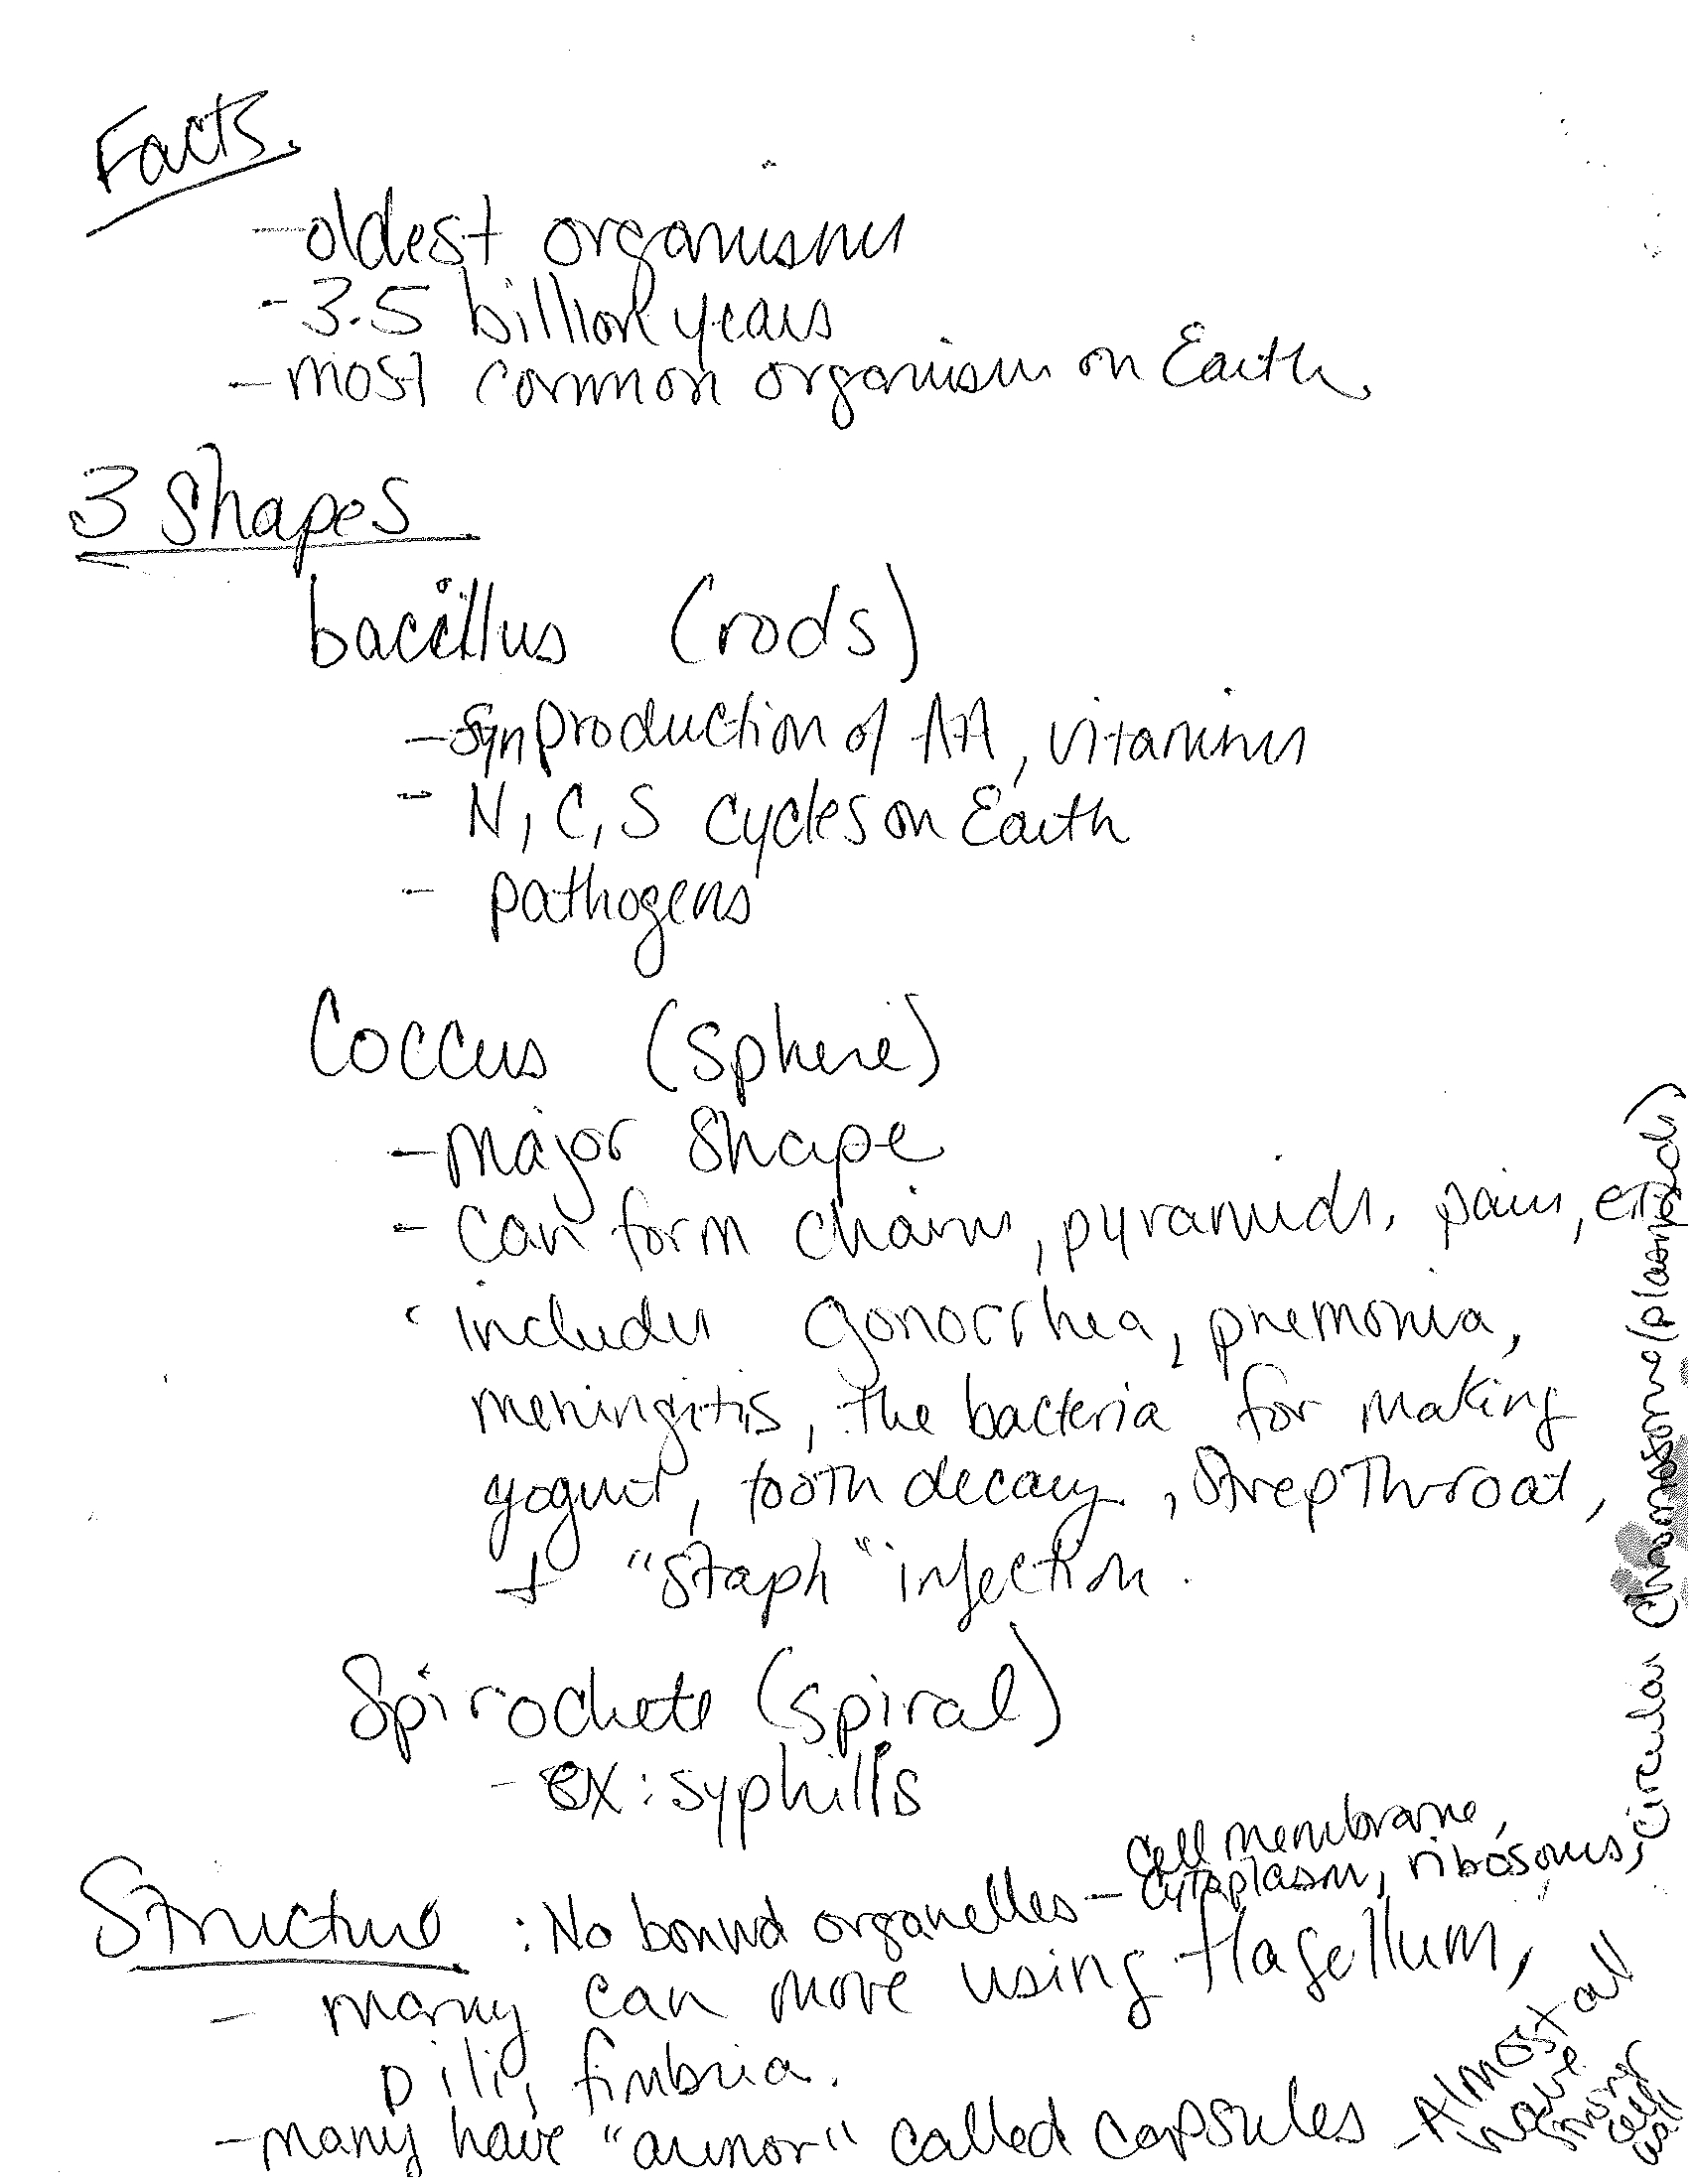 Facts.
- oldest organisms
- 3.5 billion years
- most common organism on Earth.
3 shapes
bacillus (rods)
- Syn production of AA, vitamins
- N, C, S cycles on Earth
- pathogens
Coccus (sphere)
- major shape
- can form chains, pyramids, pairs, etc
- includes gonorrhea, pnemonia,
meningitis, the bacteria for making
yogurt, tooth decay, strep throat,
+ "staph" infection.
Spirochete (spiral)
- ex: syphillis
Structure : No bound organelles - Cell membrane,
cytoplasm, ribosomes, circular chromosome (plasmids)
- many can move using flagellum,
pili, fimbria.
- many have "armor" called capsules - Almost all
have
strong
cell
wall